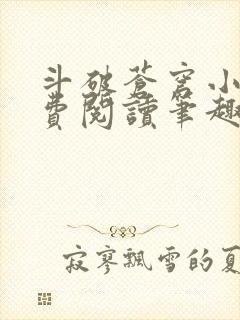 斗破苍穹小
费阅讀筆趣
寂寥飘雪的夏